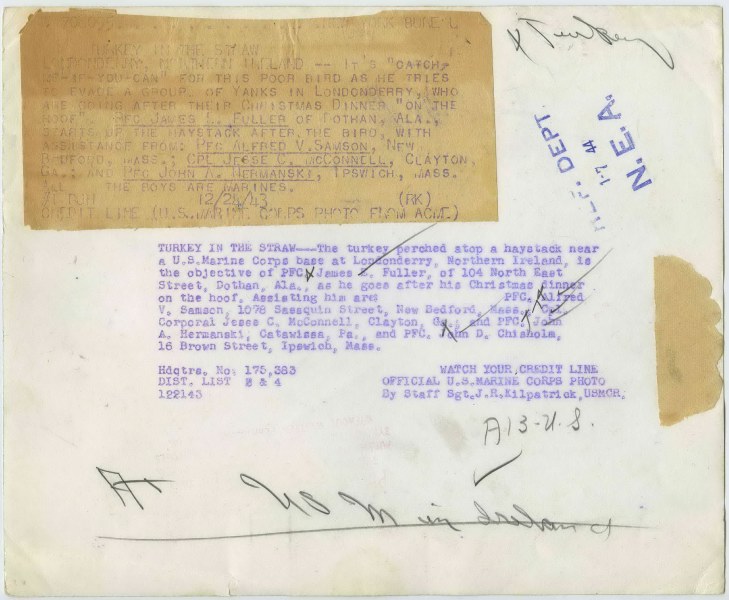 x Turkey
TURKEY IN THE STRAW
LONDONDERRY, NORTHERN IRELAND -- IT'S "CATCH
ME-IF-YOU-CAN" FOR THIS POOR BIRD AS HE TRIES
TO EVADE A GROUP OF YANKS IN LONDONDERRY, WHO
ARE GOING AFTER THEIR CHRISTMAS DINNER "ON THE
HOOF". PFC JAMES L. FULLER OF DOTHAN, ALA.,
STARTS UP THE HAYSTACK AFTER THE BIRD, WITH
ASSISTANCE FROM: PFC ALFRED V. SAMSON, NEW
BEDFORD, MASS.; CPL JESSE C. MCCONNELL, CLAYTON,
GA.; AND PFC JOHN A. HERMANSKI, IPSWICH, MASS.
ALL THE BOYS ARE MARINES.
12/28/43 (RK)
CREDIT LINE (U.S. MARINE CORPS PHOTO FROM ACME)
REF. DEPT.
1-7 44
N.E.A.
TURKEY IN THE STRAW---The turkey perched atop a haystack near
a U.S.Marine Corps base at Londonderry, Northern Ireland, is
the objective of PFC. James L. Fuller, of 104 North East
Street, Dothan, Ala., as he goes after his Christmas dinner
on the hoof. Assisting him are PFC. Alfred
V. Samson, 1078 Sassquin Street, New Bedford, Mass.,
Corporal Jesse C. McConnell, Clayton, Ga., and PFC. John
A. Hermanski, Catawissa, Pa., and PFC. John D. Chisholm,
16 Brown Street, Ipswich, Mass.
Hdqtrs. No: 175,383 WATCH YOUR CREDIT LINE
DIST. LIST 2 & 4 OFFICIAL U.S.MARINE CORPS PHOTO
122143 By Staff Sgt.J.R.Kilpatrick,USMCR.
A13-U.S.
US M in Ireland